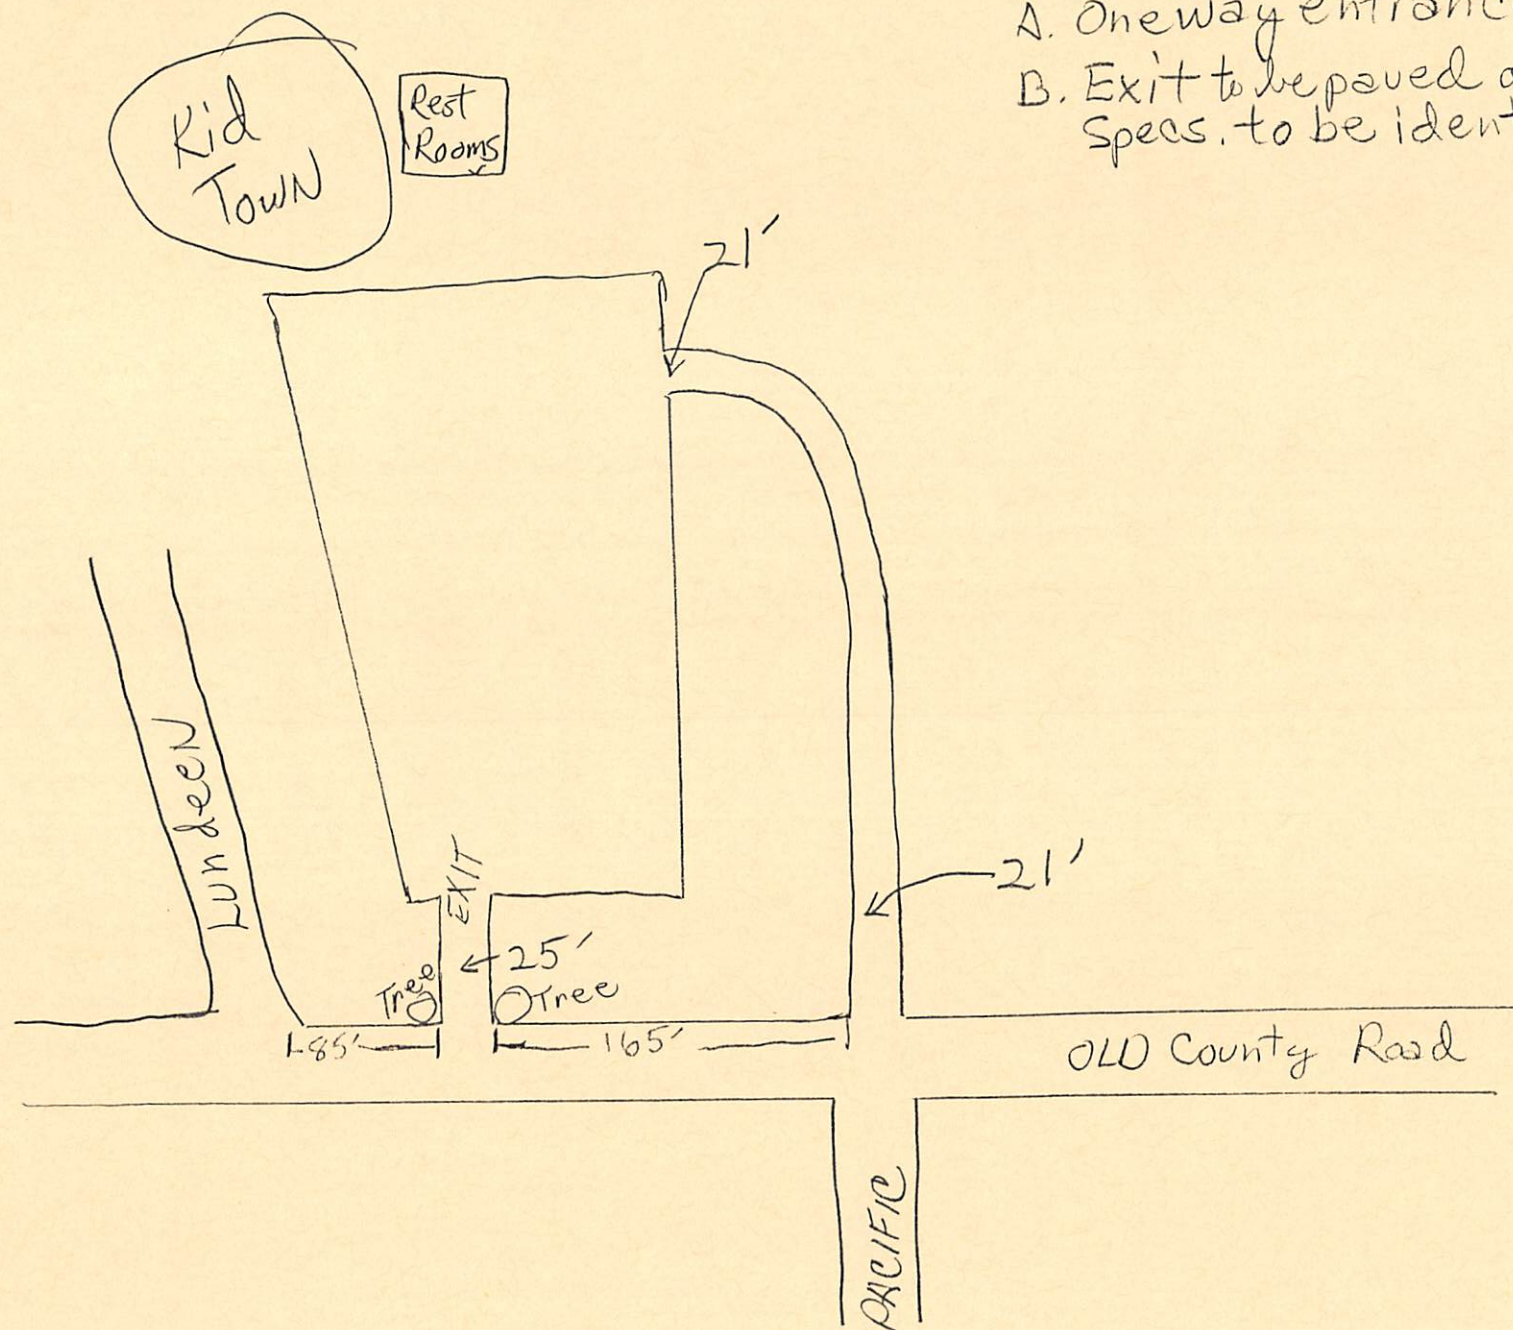 A. One way entranc
B. Exit to be paved
Specs. to be ident
Kid
Town
Rest
Rooms
21'
LundeeN
EXIT
21'
25'
Tree
Tree
85'
165'
OLD County Road
PACIFIC